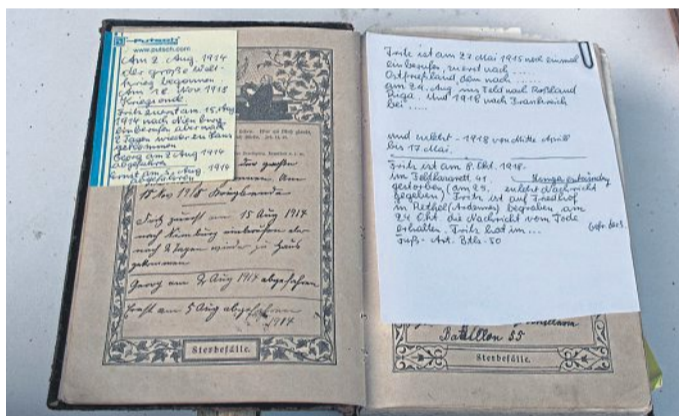 putsch
www.putsch.com
Am 2. Aug. 1914
der große Welt-
krieg begonnen
Am 18. Nov 1918
Kriegsende
Fritz zuerst am 15. Aug
1914 nach Nienburg
einberufen aber nach
2 Tagen wieder zu Haus
gekommen
Georg am 2. Aug 1914
abgefahren
Ernst am 5. Aug. 1914
abgefahren
der große
Am
18 Nov 1918 Kriegsende
Fritz zuerst am 15 Aug 1914
nach Nienburg einberufen aber
nach 2 Tagen wieder zu Haus
gekommen
Georg am 2 Aug 1914 abgefahren
Ernst am 5 Aug abgefahren
1914
Sterbefälle.
Fritz ist am 27. Mai 1915 noch einmal
einberufen, zuerst nach .....
Ostfriesland, dann nach .....
am 24. Aug. ins Feld nach Rußland
Riga. Und 1916 nach Frankreich
bei .....
und zuletzt - 1918 von Mitte April
bis 17. Mai.
Fritz ist am 8. Okt. 1918.
im Feldlazarett 41.
gestorben (am 25. zuletzt Nachricht
gegeben) Fritz ist auf Friedhof
in Rethel (Ardennen) begraben am
24 Okt. die Nachricht vom Tode
erhalten. Fritz hat im ...
Fuß- Art. Btl. - 50
Bataillon 55
Sterbefälle.